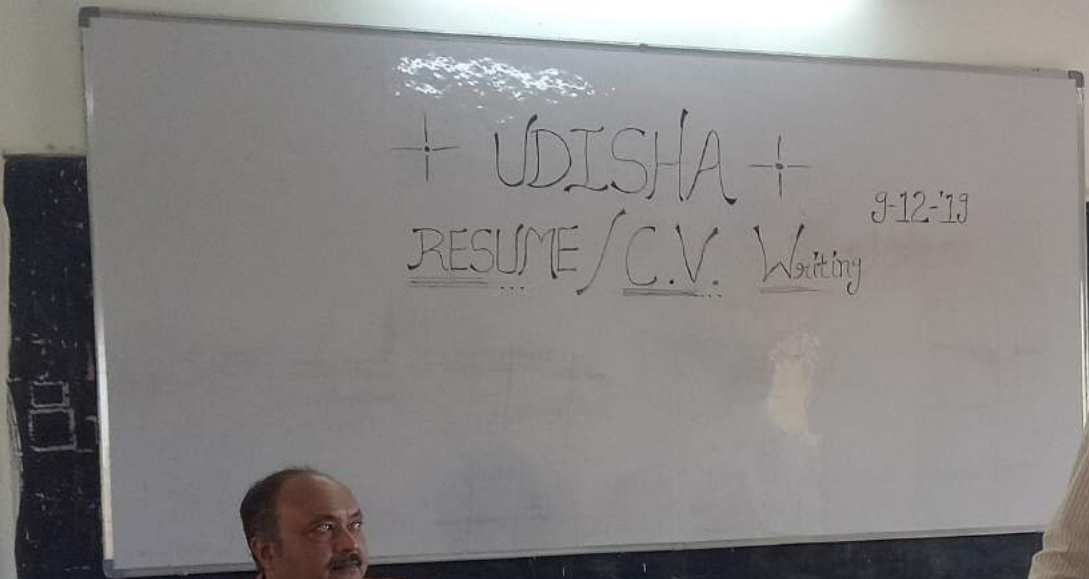 + UDISHA +
9-12-'19
RESUME/C.V. Writing